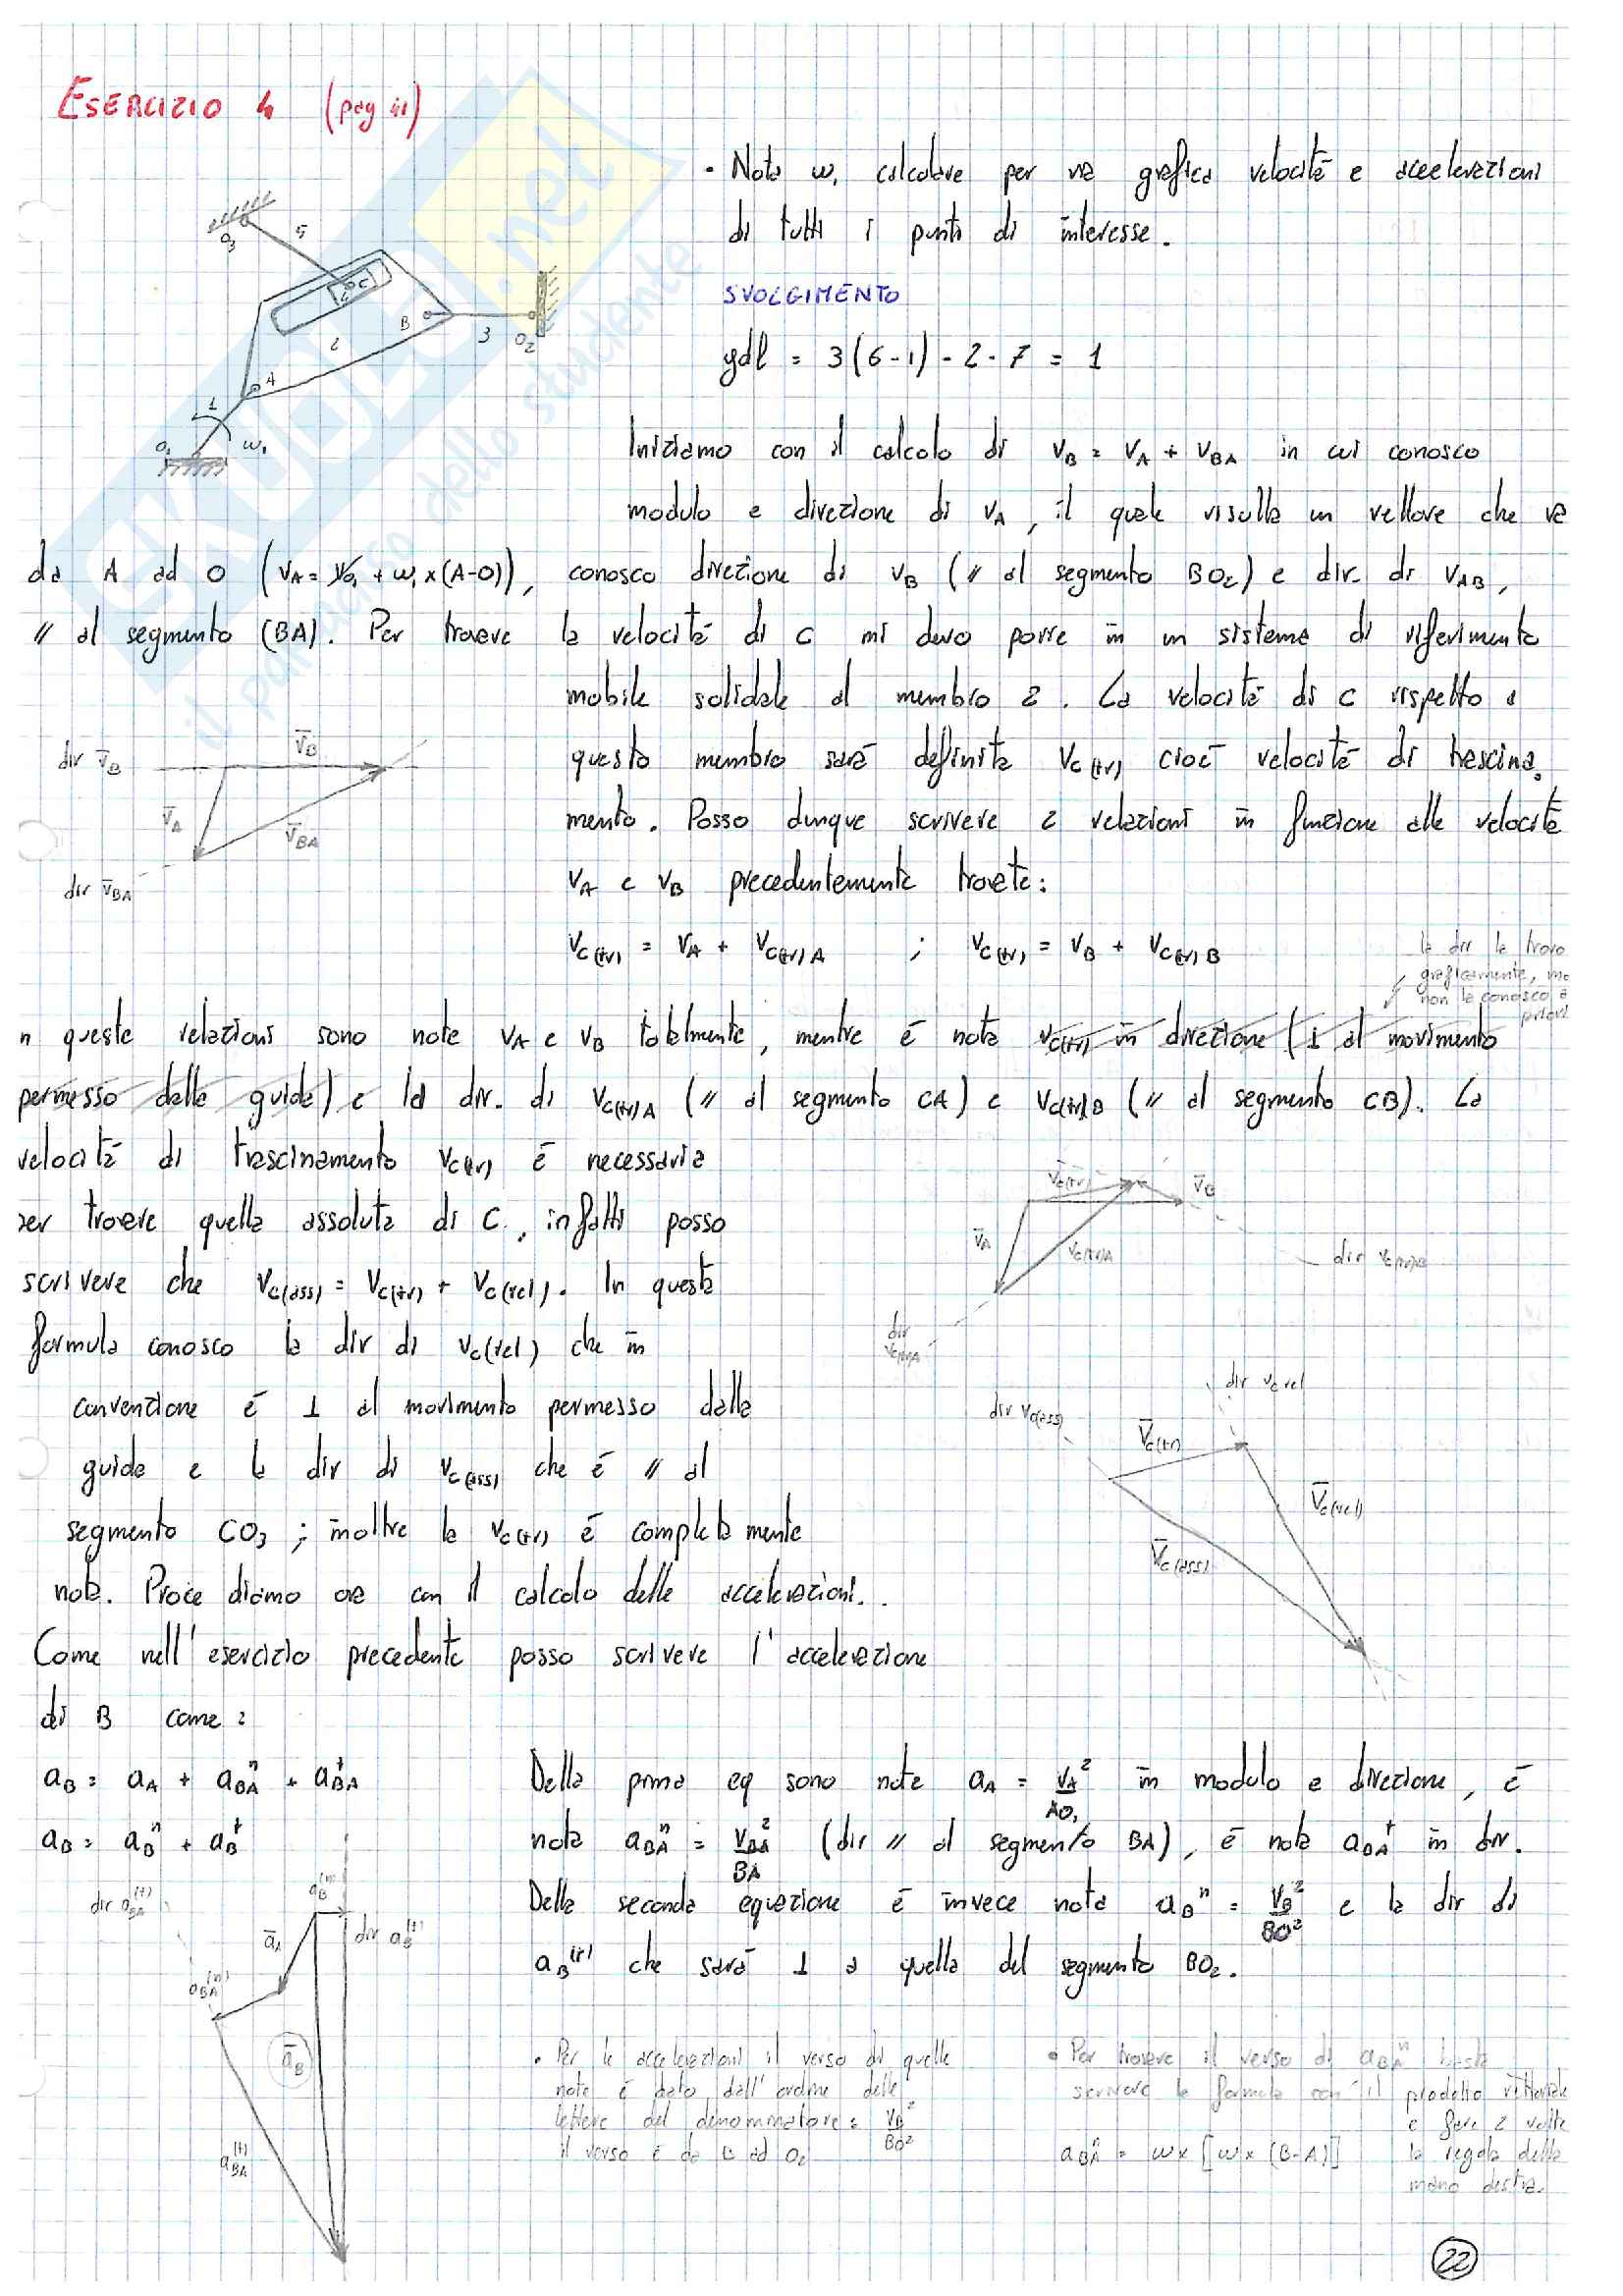 ESERCIZIO 4 (pag 41)
• Nota ω₁ calcolare per via grafica velocità e accelerazioni
di tutti i punti di interesse.
SVOLGIMENTO
gdl = 3(6-1) - 2·7 = 1
O₃ 5 4 C B 3 O₂ 2 A 1 O₁ ω₁
Iniziamo con il calcolo di v_B = v_A + v_BA in cui conosco
modulo e direzione di v_A, il quale risulta un vettore che va
da A ad O (v_A = v_O₁ + ω₁ x (A-O)), conosco direzione di v_B (// al segmento BO₂) e dir. di v_AB,
// al segmento (BA). Per trovare la velocità di C mi devo porre in un sistema di riferimento
mobile solidale al membro 2. La velocità di C rispetto a
questo membro sarà definita v_C(tr) cioè velocità di trascina
mento. Posso dunque scrivere 2 relazioni in funzione alle velocità
v_A e v_B precedentemente trovate:
dir v̄_B v̄_B
v̄_A v̄_BA
dir v̄_BA
v_C(tr) = v_A + v_C(tr)A ; v_C(tr) = v_B + v_C(tr)B
la dir la trovo
graficamente, ma
non la conosco a
priori
n queste relazioni sono note v_A e v_B totalmente, mentre è nota v_C(tr) in direzione (⊥ al movimento
permesso dalla guida) e la dir. di v_C(tr)A (// al segmento CA) e v_C(tr)B (// al segmento CB). La
velocità di trascinamento v_C(tr) è necessaria
per trovare quella assoluta di C, infatti posso
scrivere che v_C(ass) = v_C(tr) + v_C(rel). In questa
formula conosco la dir di v_C(rel) che in
convenzione è ⊥ al movimento permesso dalla
guida e la dir di v_C(ass) che è // al
segmento CO₃; inoltre la v_C(tr) è completamente
nota. Procediamo ora con il calcolo delle accelerazioni..
v̄_C(tr) v̄_B
v̄_A v_C(tr)A dir v_C(tr)B
dir
v_C(tr)A
dir v_C rel
dir v_C(ass)
v̄_C(tr)
v̄_C(rel)
v̄_C(ass)
Come nell'esercizio precedente posso scrivere l'accelerazione
di B come:
a_B = a_A + a_BA^n + a_BA^t
a_B = a_B^n + a_B^t
Della prima eq sono note a_A = v_A²/AO₁ in modulo e direzione, è
nota a_BA^n = v_BA²/BA (dir // al segmento BA), è nota a_BA^t in dir.
Della seconda equazione è invece nota a_B^n = v_B²/BO² e la dir di
a_B^(t) che sarà ⊥ a quella del segmento BO₂.
a_B^(n)
dir a_BA^(t)
ā_A dir a_B^(t)
a_BA^(n)
ā_B
a_BA^(t)
• Per le accelerazioni il verso di quelle
note è dato dall'ordine delle
lettere del denominatore: v_B²/BO²
il verso è da B ad O₂
• Per trovare il verso di a_BA^n basta
scrivere la formula con il prodotto vettoriale
e fare 2 volte
a_BA^n = ω x [ω x (B-A)] la regola della
mano destra.
22